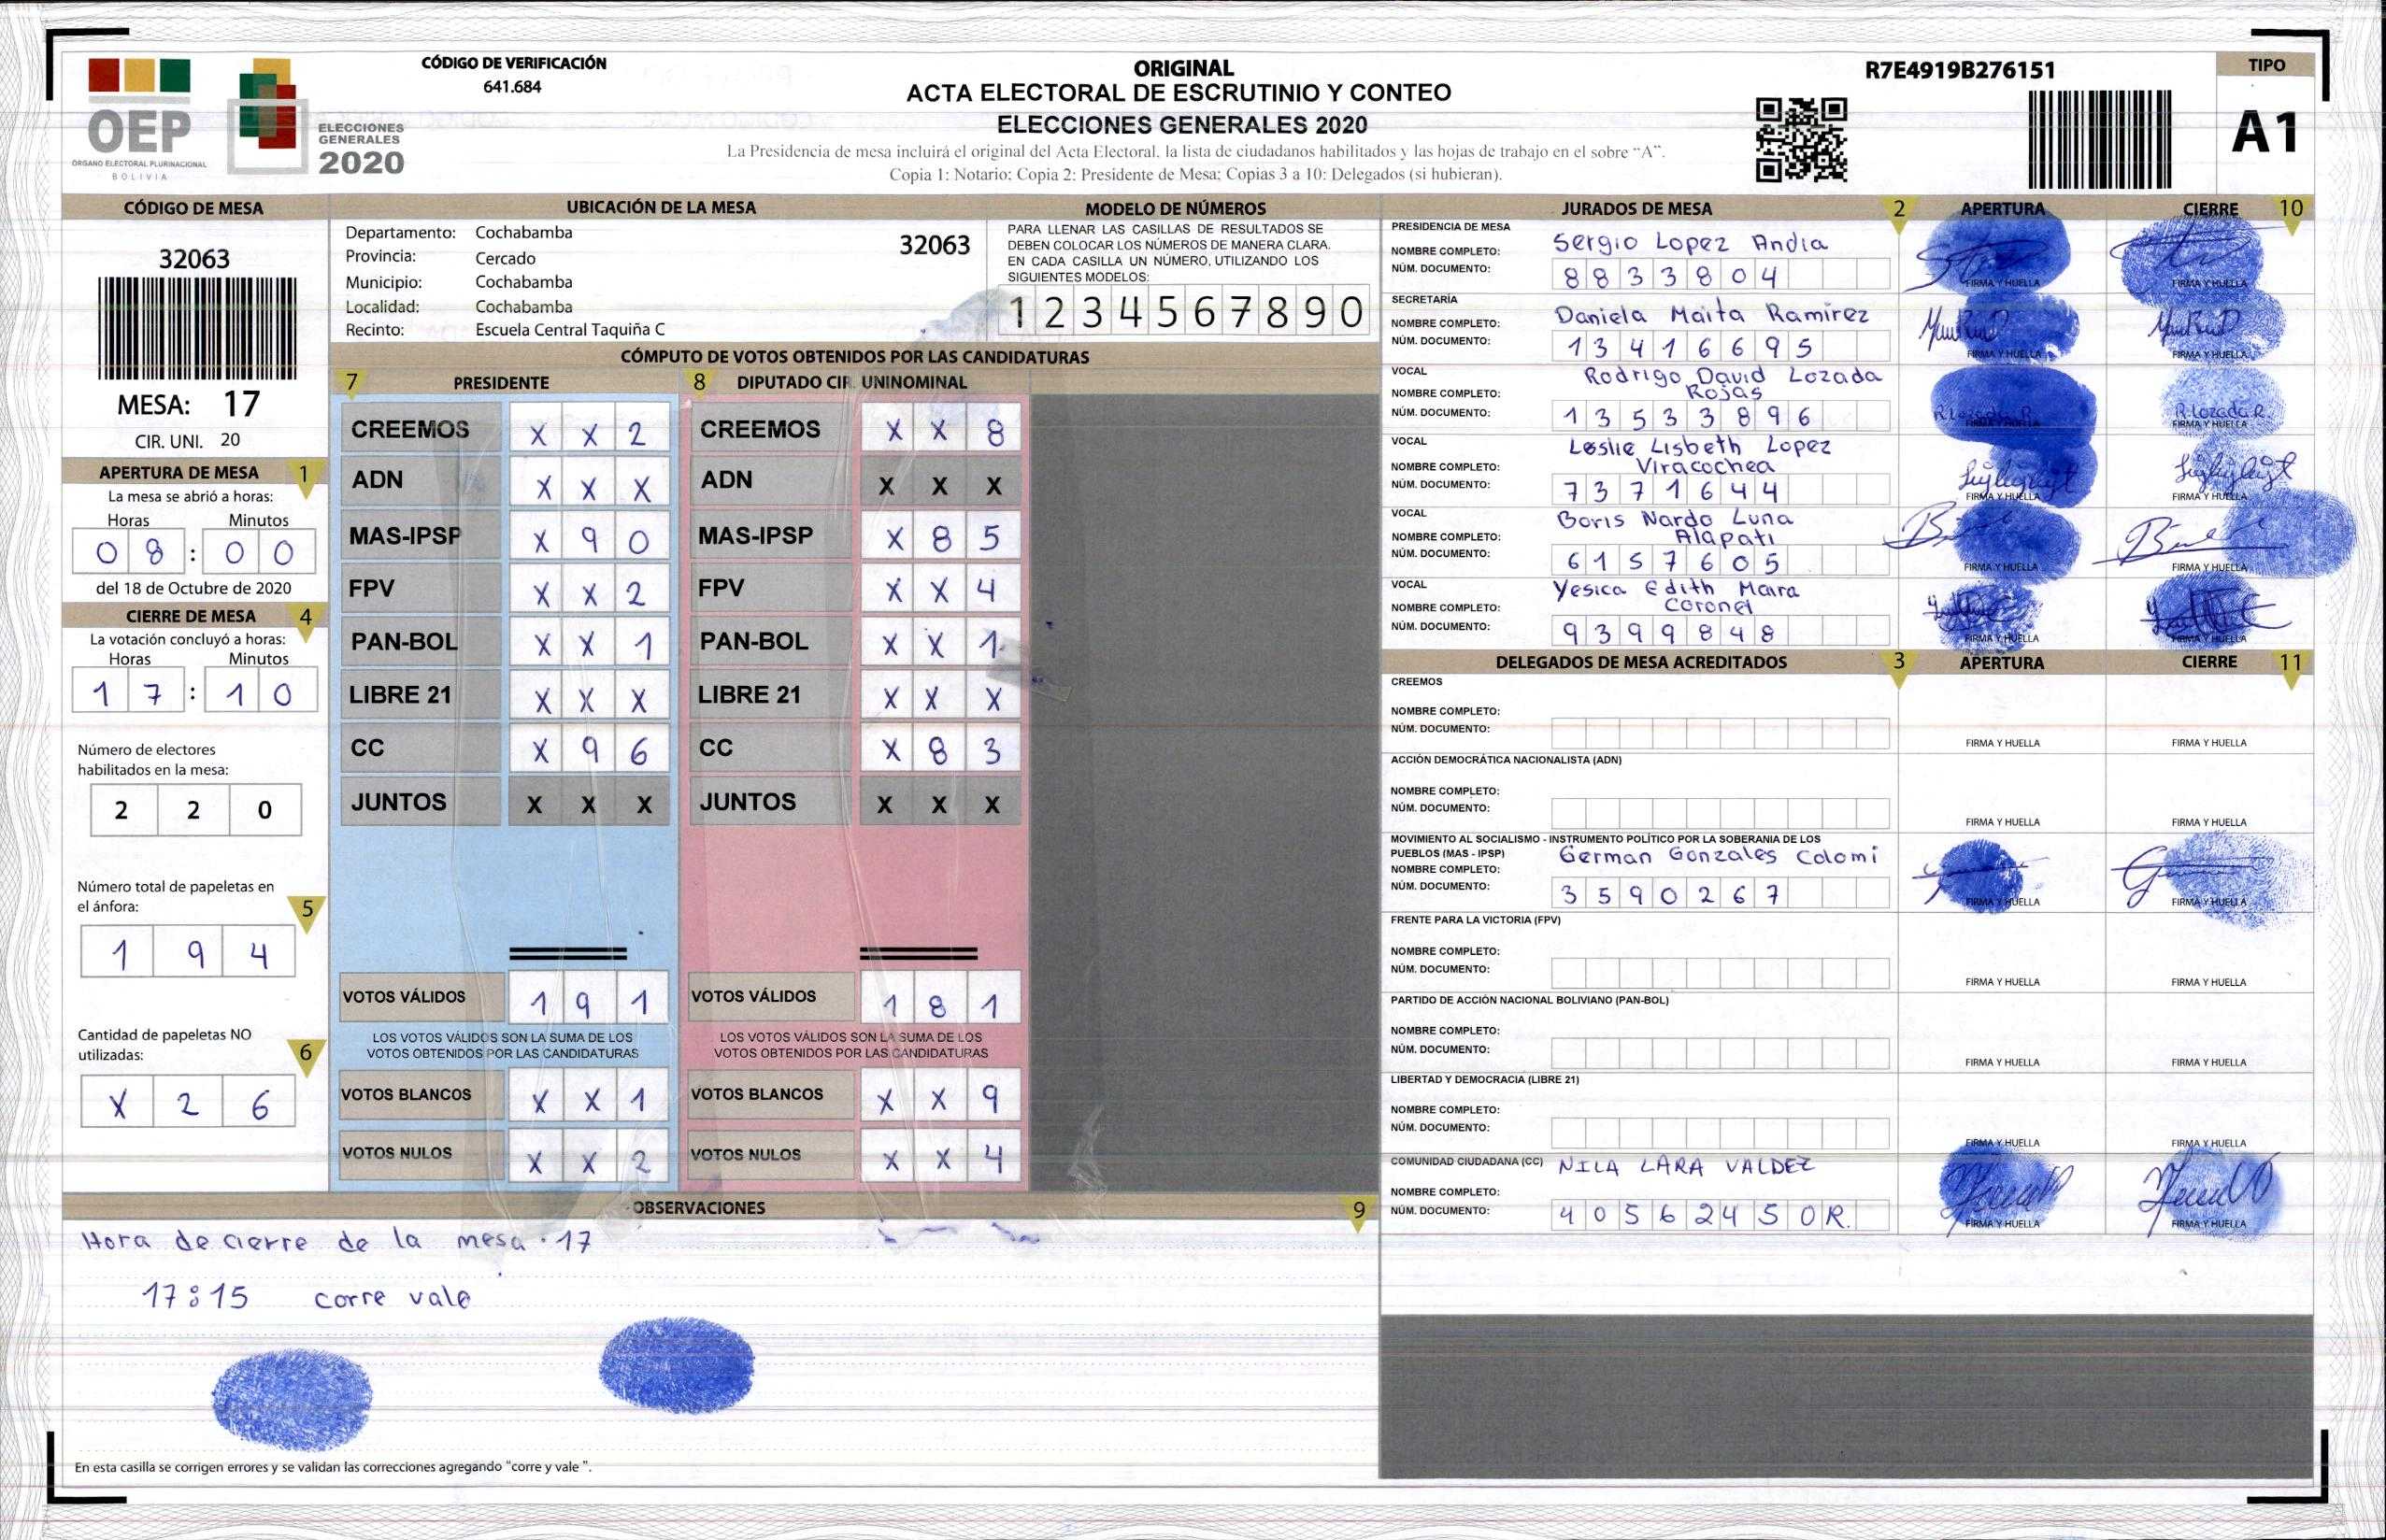 OEP
ORGANO ELECTORAL PLURINACIONAL
BOLIVIA
ELECCIONES
GENERALES
2020
CÓDIGO DE VERIFICACIÓN
641.684
ORIGINAL
ACTA ELECTORAL DE ESCRUTINIO Y CONTEO
ELECCIONES GENERALES 2020
La Presidencia de mesa incluirá el original del Acta Electoral, la lista de ciudadanos habilitados y las hojas de trabajo en el sobre "A".
Copia 1: Notario; Copia 2: Presidente de Mesa; Copias 3 a 10: Delegados (si hubieran).
R7E4919B276151
TIPO
A1
CÓDIGO DE MESA
32063
MESA: 17
CIR. UNI. 20
APERTURA DE MESA 1
La mesa se abrió a horas:
Horas Minutos
0 8 : 0 0
del 18 de Octubre de 2020
CIERRE DE MESA 4
La votación concluyó a horas:
Horas Minutos
1 7 : 1 0
Número de electores
habilitados en la mesa:
2 2 0
Número total de papeletas en
el ánfora: 5
1 9 4
Cantidad de papeletas NO
utilizadas: 6
X 2 6
UBICACIÓN DE LA MESA
Departamento: Cochabamba
Provincia: Cercado
Municipio: Cochabamba
Localidad: Cochabamba
Recinto: Escuela Central Taquiña C
32063
MODELO DE NÚMEROS
PARA LLENAR LAS CASILLAS DE RESULTADOS SE
DEBEN COLOCAR LOS NÚMEROS DE MANERA CLARA.
EN CADA CASILLA UN NÚMERO, UTILIZANDO LOS
SIGUIENTES MODELOS:
1 2 3 4 5 6 7 8 9 0
CÓMPUTO DE VOTOS OBTENIDOS POR LAS CANDIDATURAS
7 PRESIDENTE
CREEMOS X X 2
ADN X X X
MAS-IPSP X 9 0
FPV X X 2
PAN-BOL X X 1
LIBRE 21 X X X
CC X 9 6
JUNTOS X X X
VOTOS VÁLIDOS 1 9 1
LOS VOTOS VÁLIDOS SON LA SUMA DE LOS
VOTOS OBTENIDOS POR LAS CANDIDATURAS
VOTOS BLANCOS X X 1
VOTOS NULOS X X 2
8 DIPUTADO CIR. UNINOMINAL
CREEMOS X X 8
ADN X X X
MAS-IPSP X 8 5
FPV X X 4
PAN-BOL X X 1
LIBRE 21 X X X
CC X 8 3
JUNTOS X X X
VOTOS VÁLIDOS 1 8 1
LOS VOTOS VÁLIDOS SON LA SUMA DE LOS
VOTOS OBTENIDOS POR LAS CANDIDATURAS
VOTOS BLANCOS X X 9
VOTOS NULOS X X 4
OBSERVACIONES 9
Hora de cierre de la mesa 17
17:15 corre vale
En esta casilla se corrigen errores y se validan las correcciones agregando "corre y vale ".
JURADOS DE MESA 2 APERTURA CIERRE 10
PRESIDENCIA DE MESA
NOMBRE COMPLETO: Sergio Lopez Andia
NÚM. DOCUMENTO: 8 8 3 3 8 0 4
FIRMA Y HUELLA FIRMA Y HUELLA
SECRETARÍA
NOMBRE COMPLETO: Daniela Maita Ramirez
NÚM. DOCUMENTO: 1 3 4 1 6 6 9 5
FIRMA Y HUELLA FIRMA Y HUELLA
VOCAL
NOMBRE COMPLETO: Rodrigo David Lozada
Rojas
NÚM. DOCUMENTO: 1 3 5 3 3 8 9 6
R. Lozada R. R. Lozada R.
FIRMA Y HUELLA FIRMA Y HUELLA
VOCAL
NOMBRE COMPLETO: Leslie Lisbeth Lopez
Viracochea
NÚM. DOCUMENTO: 7 3 7 1 6 4 4
FIRMA Y HUELLA FIRMA Y HUELLA
VOCAL
NOMBRE COMPLETO: Boris Nardo Luna
Alapati
NÚM. DOCUMENTO: 6 1 5 7 6 0 5
FIRMA Y HUELLA FIRMA Y HUELLA
VOCAL
NOMBRE COMPLETO: Yesica Edith Maira
Coronel
NÚM. DOCUMENTO: 9 3 9 9 8 4 8
FIRMA Y HUELLA FIRMA Y HUELLA
DELEGADOS DE MESA ACREDITADOS 3 APERTURA CIERRE 11
CREEMOS
NOMBRE COMPLETO:
NÚM. DOCUMENTO:
FIRMA Y HUELLA FIRMA Y HUELLA
ACCIÓN DEMOCRÁTICA NACIONALISTA (ADN)
NOMBRE COMPLETO:
NÚM. DOCUMENTO:
FIRMA Y HUELLA FIRMA Y HUELLA
MOVIMIENTO AL SOCIALISMO - INSTRUMENTO POLÍTICO POR LA SOBERANIA DE LOS
PUEBLOS (MAS - IPSP)
NOMBRE COMPLETO: German Gonzales Colomi
NÚM. DOCUMENTO: 3 5 9 0 2 6 7
FIRMA Y HUELLA FIRMA Y HUELLA
FRENTE PARA LA VICTORIA (FPV)
NOMBRE COMPLETO:
NÚM. DOCUMENTO:
FIRMA Y HUELLA FIRMA Y HUELLA
PARTIDO DE ACCIÓN NACIONAL BOLIVIANO (PAN-BOL)
NOMBRE COMPLETO:
NÚM. DOCUMENTO:
FIRMA Y HUELLA FIRMA Y HUELLA
LIBERTAD Y DEMOCRACIA (LIBRE 21)
NOMBRE COMPLETO:
NÚM. DOCUMENTO:
FIRMA Y HUELLA FIRMA Y HUELLA
COMUNIDAD CIUDADANA (CC) NILA LARA VALDEZ
NOMBRE COMPLETO:
NÚM. DOCUMENTO: 4 0 5 6 2 4 5 0R.
FIRMA Y HUELLA FIRMA Y HUELLA